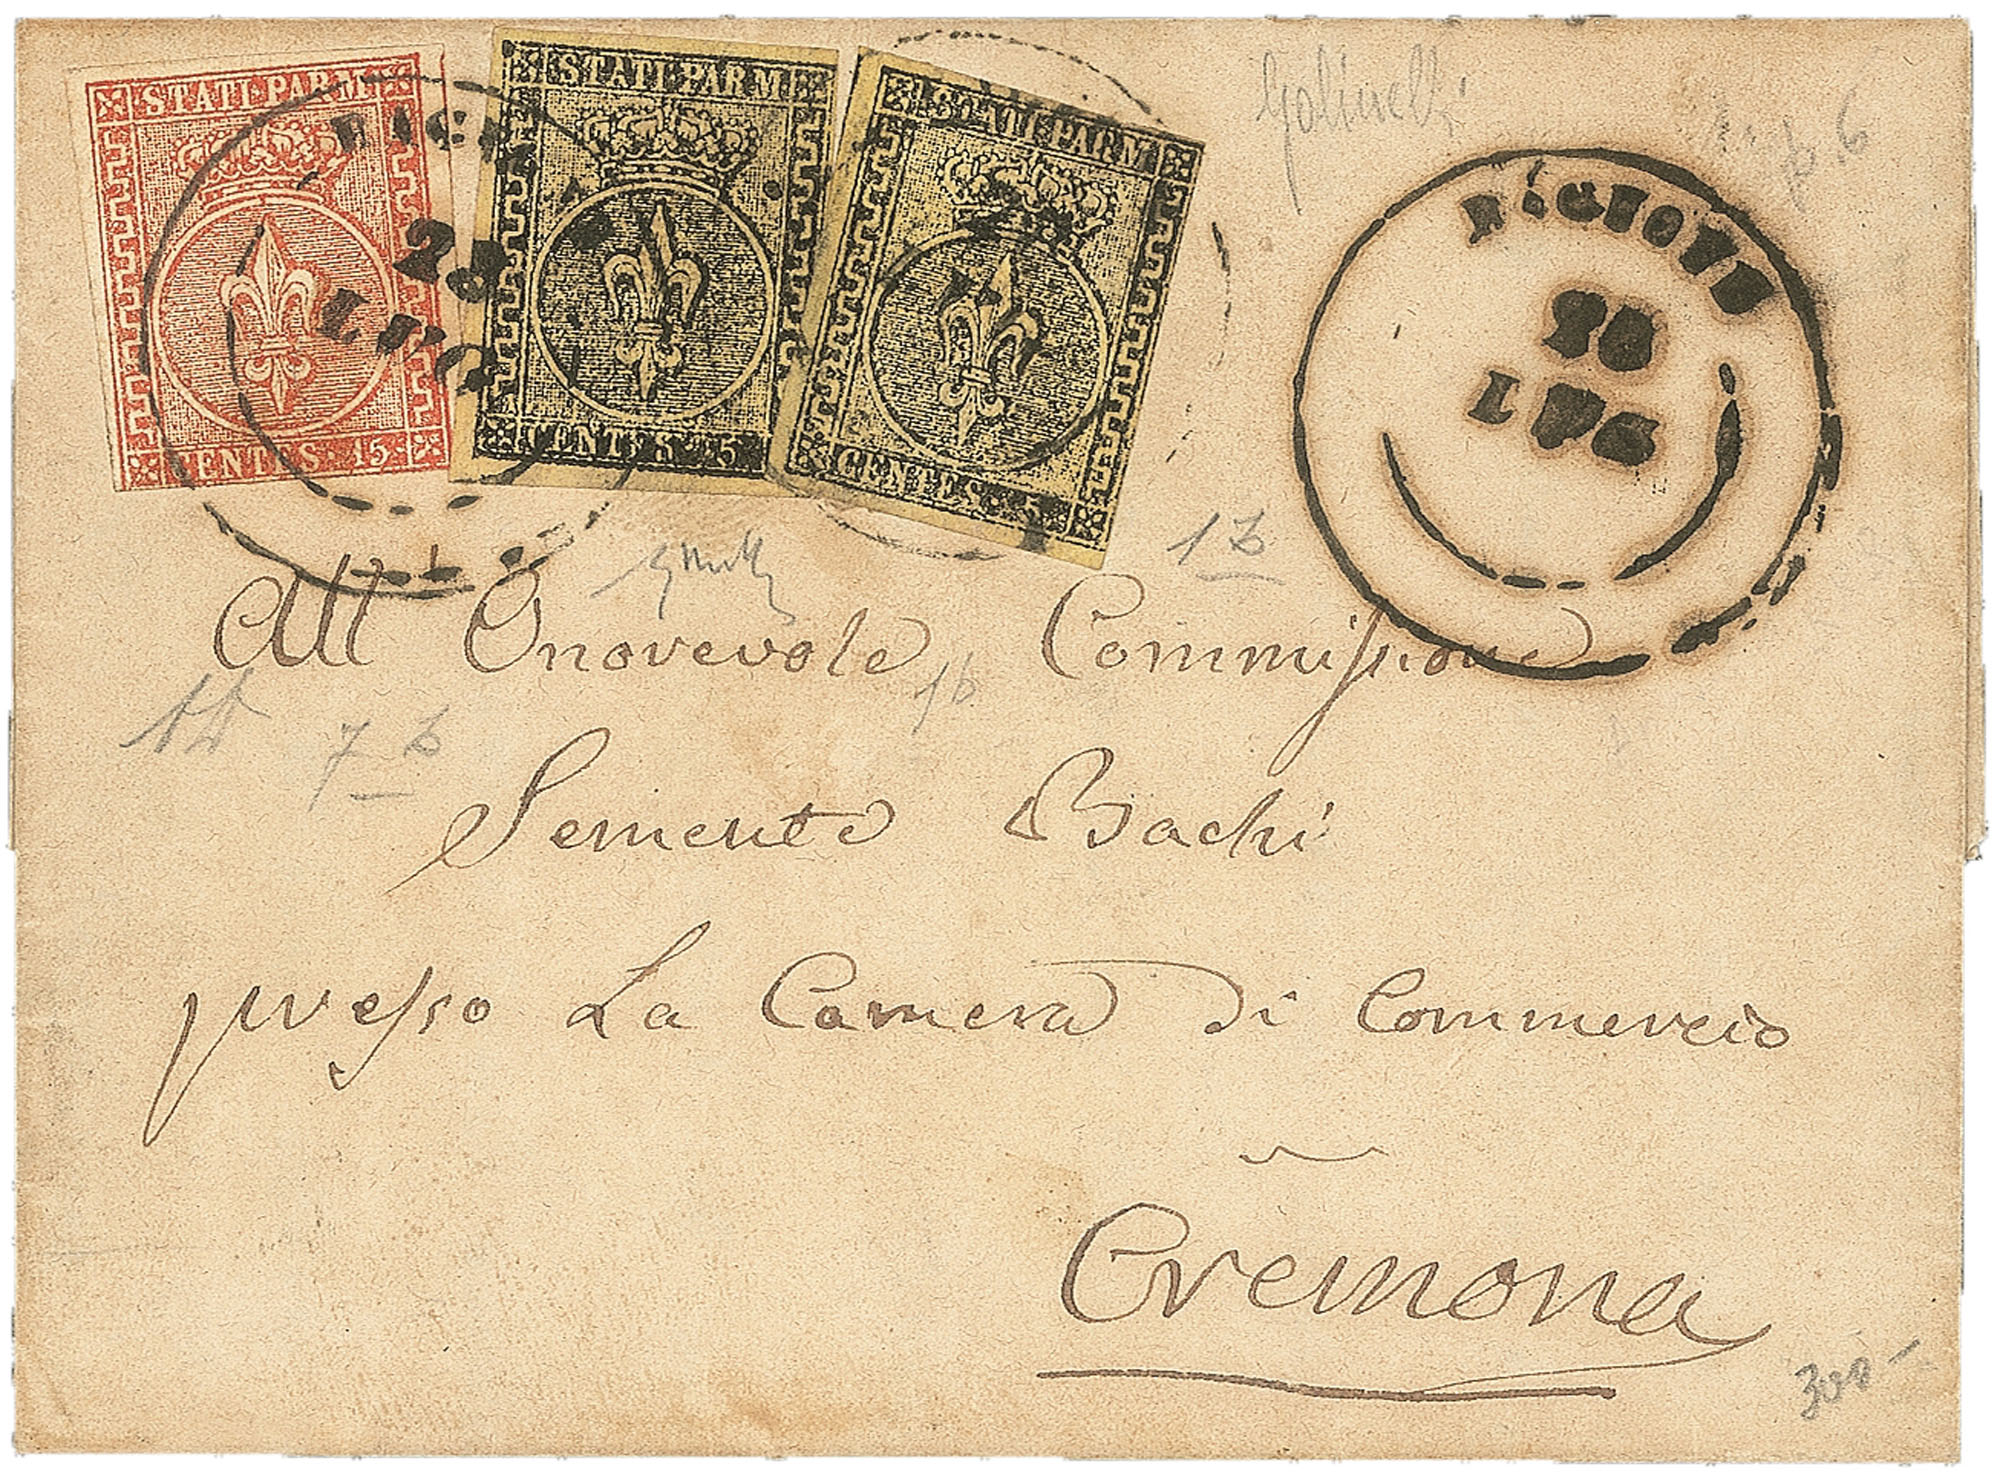 STATI PARM.
CENTES. 15.
STATI PARME
CENTES. 5
STATI PARM
CENTES. 5
28
LUG
28
LUG
All Onorevole Commissione
Semente Bachi
presso La Camera di Commercio
Cremona
1b
7 b
1b
300 -